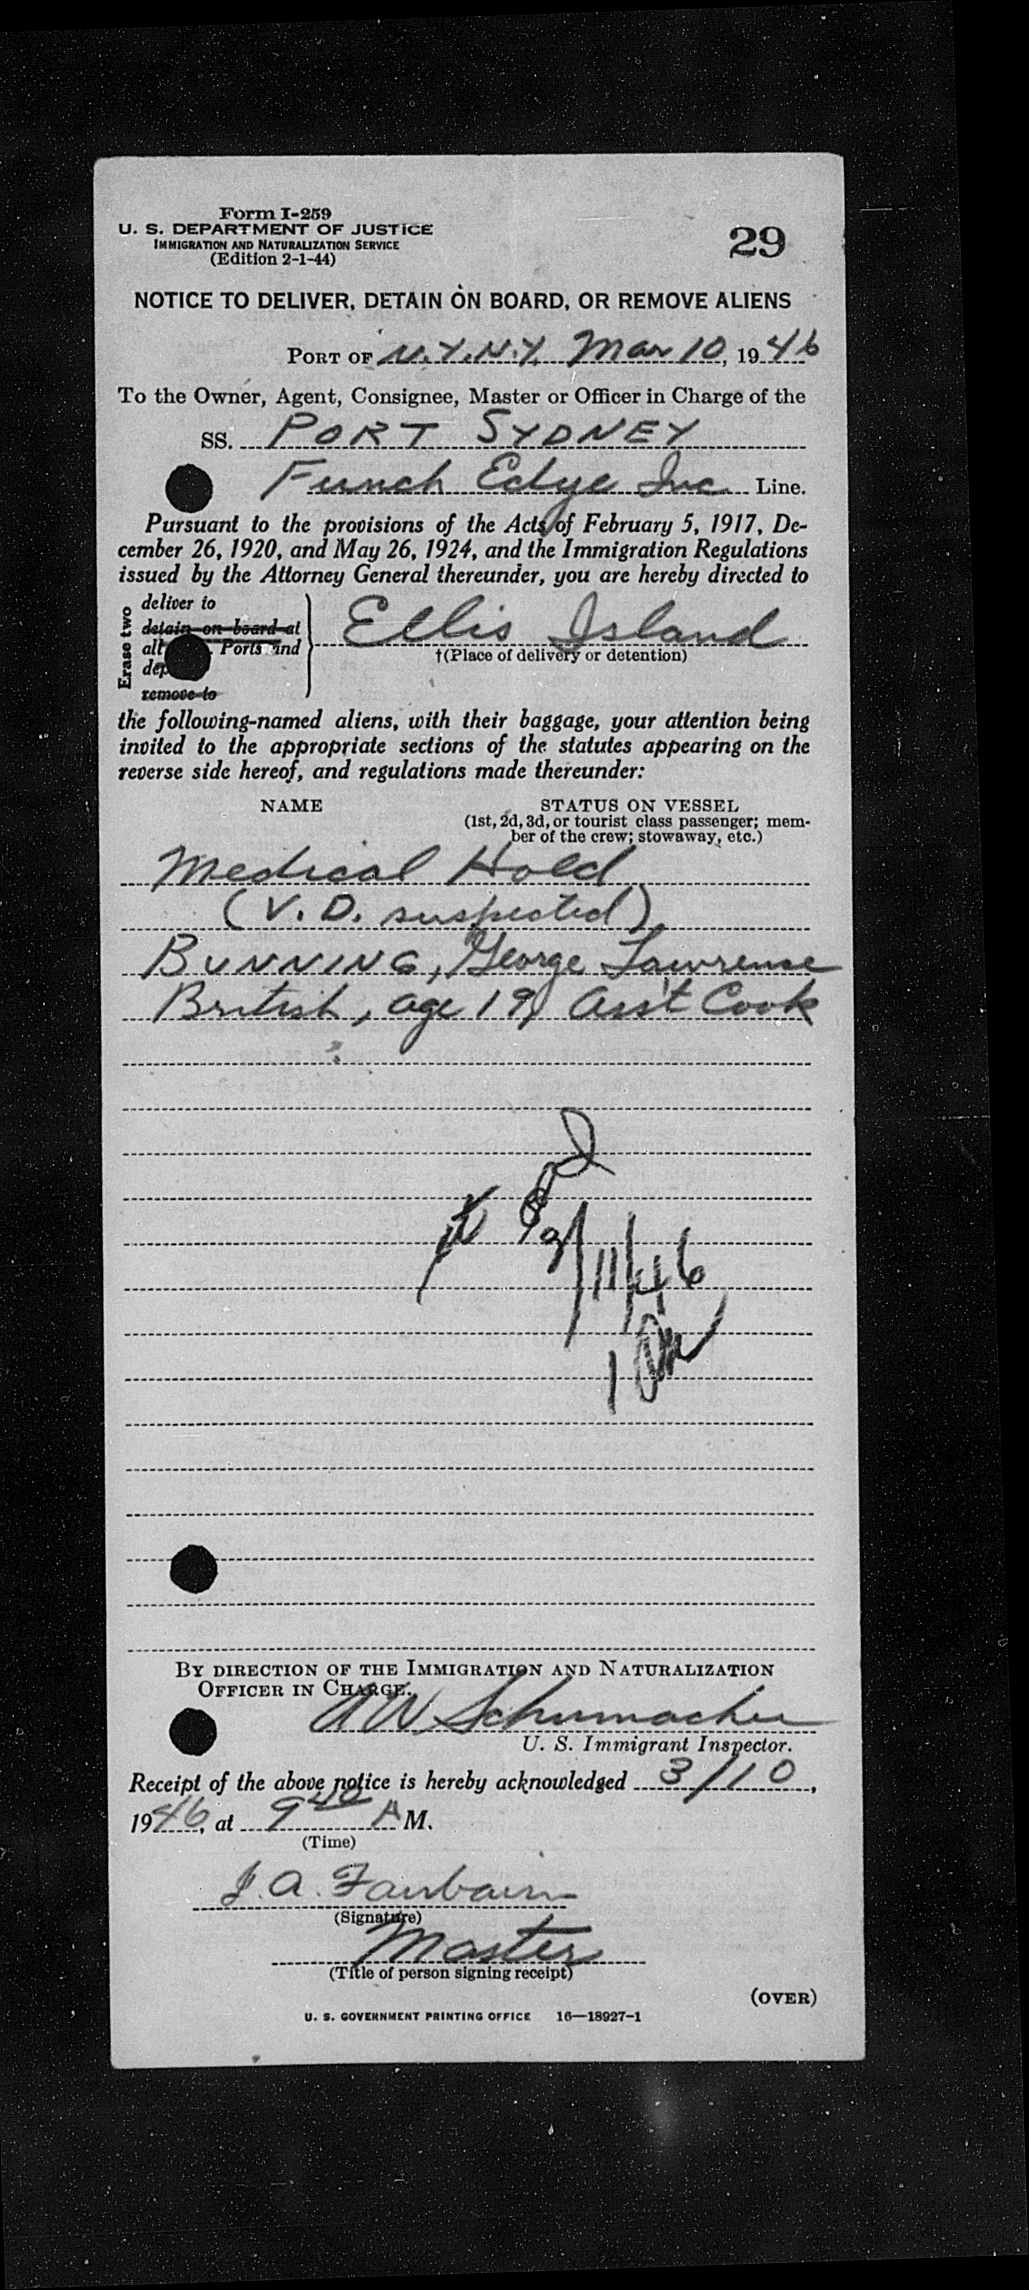 Form I-259
U. S. DEPARTMENT OF JUSTICE
IMMIGRATION AND NATURALIZATION SERVICE
(Edition 2-1-44)
29
NOTICE TO DELIVER, DETAIN ON BOARD, OR REMOVE ALIENS
PORT OF N.Y.N.Y. Mar 10, 1946
To the Owner, Agent, Consignee, Master or Officer in Charge of the
SS. PORT SYDNEY
Funch Edye Inc. Line.
Pursuant to the provisions of the Acts of February 5, 1917, De-
cember 26, 1920, and May 26, 1924, and the Immigration Regulations
issued by the Attorney General thereunder, you are hereby directed to
Erase two
deliver to
detain on board at
all Ports and
dep
remove to
Ellis Island
†(Place of delivery or detention)
the following-named aliens, with their baggage, your attention being
invited to the appropriate sections of the statutes appearing on the
reverse side hereof, and regulations made thereunder:
NAME
STATUS ON VESSEL
(1st, 2d, 3d, or tourist class passenger; mem-
ber of the crew; stowaway, etc.)
Medical Hold
(V. D. suspected)
BUNNING, George Lawrense
British, age 19, Ass't Cook
3/11/46
BY DIRECTION OF THE IMMIGRATION AND NATURALIZATION
OFFICER IN CHARGE.
A W Schumacher
U. S. Immigrant Inspector.
Receipt of the above notice is hereby acknowledged 3/10,
1946, at 9 40 A M.
(Time)
J. A. Fairbairn
(Signature)
Master
(Title of person signing receipt)
(OVER)
U. S. GOVERNMENT PRINTING OFFICE 16—18927-1